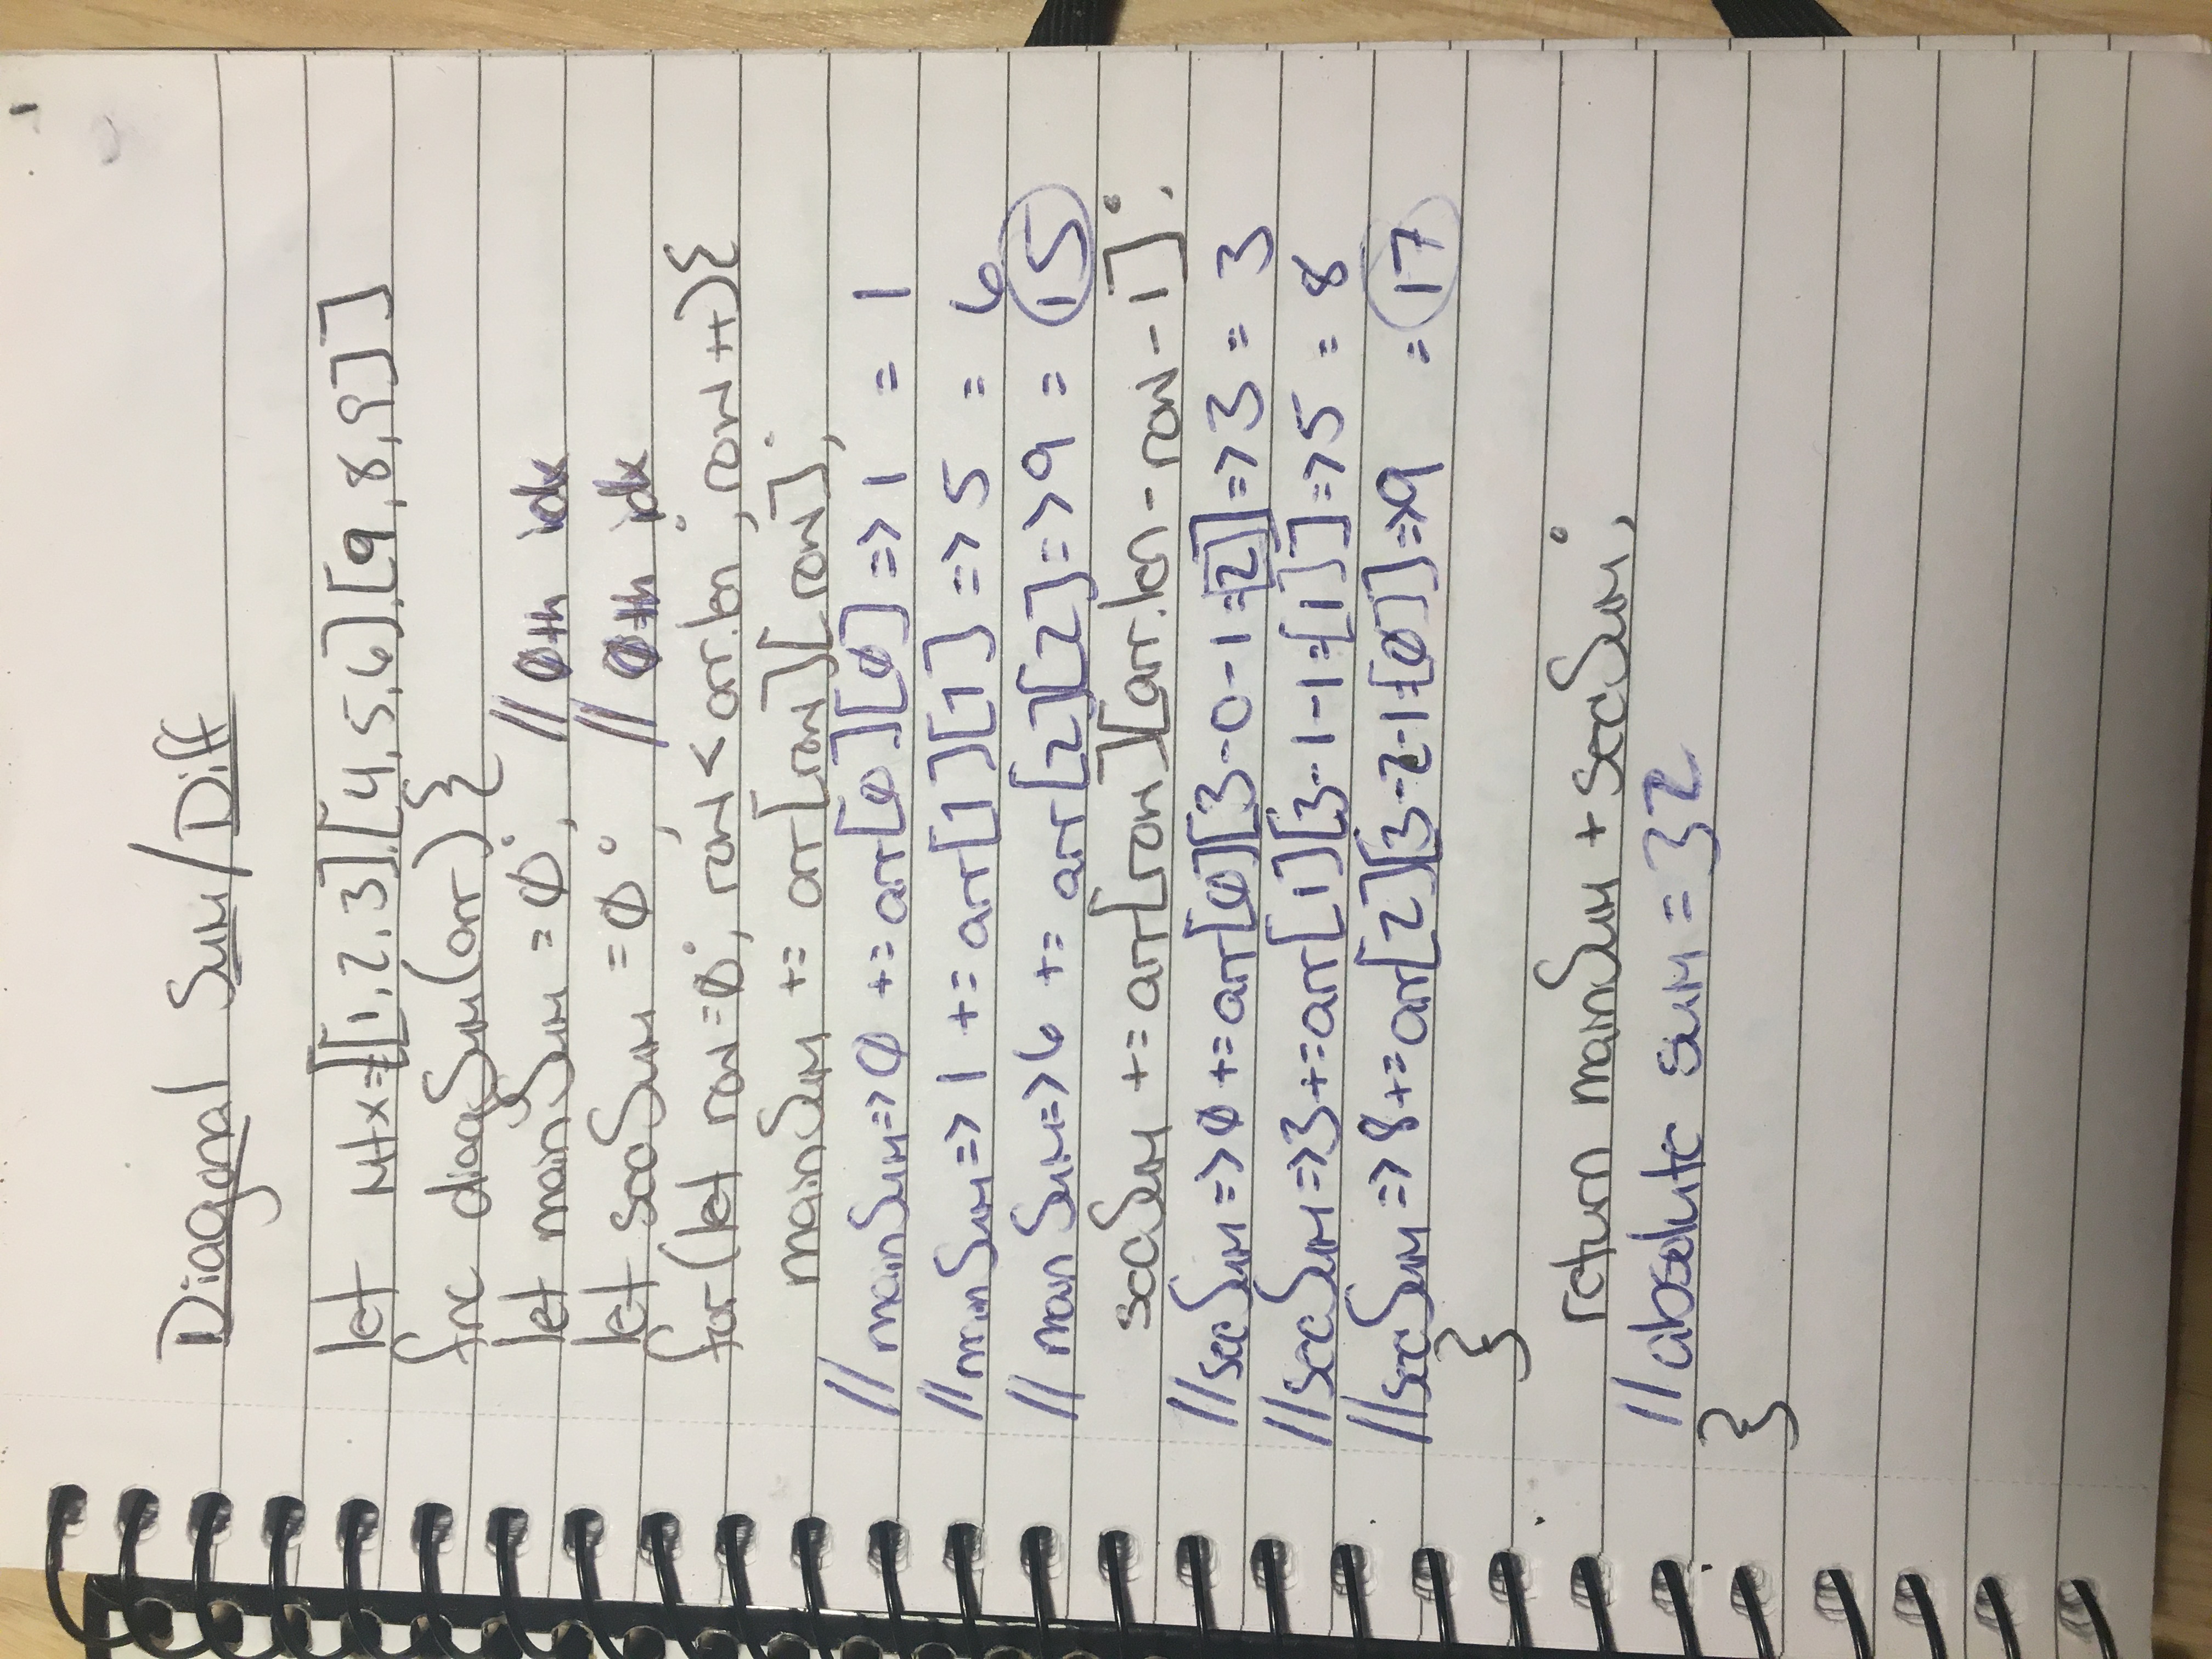 Diagonal Sum/Diff
let mtx=[[1,2,3],[4,5,6],[9,8,9]]
fnc diagSum(arr){
let mainSum = 0; // 0th idx
let secSum = 0; // 0th idx
for(let row=0; row < arr.len; row++){
mainSum += arr[row][row];
//mainSum=>0 += arr[0][0] => 1 = 1
//mainSum=>1 += arr[1][1] => 5 = 6
//mainSum=>6 += arr[2][2] => 9 = 15
secSum += arr[row][arr.len-row-1];
//secSum=>0 += arr[0][3-0-1=[2]]=>3 = 3
//secSum=>3 += arr[1][3-1-1=[1]]=>5 = 8
//secSum=>8 += arr[2][3-2-1=[0]]=>9 = 17
}
return mainSum + secSum;
//absolute sum = 32
}